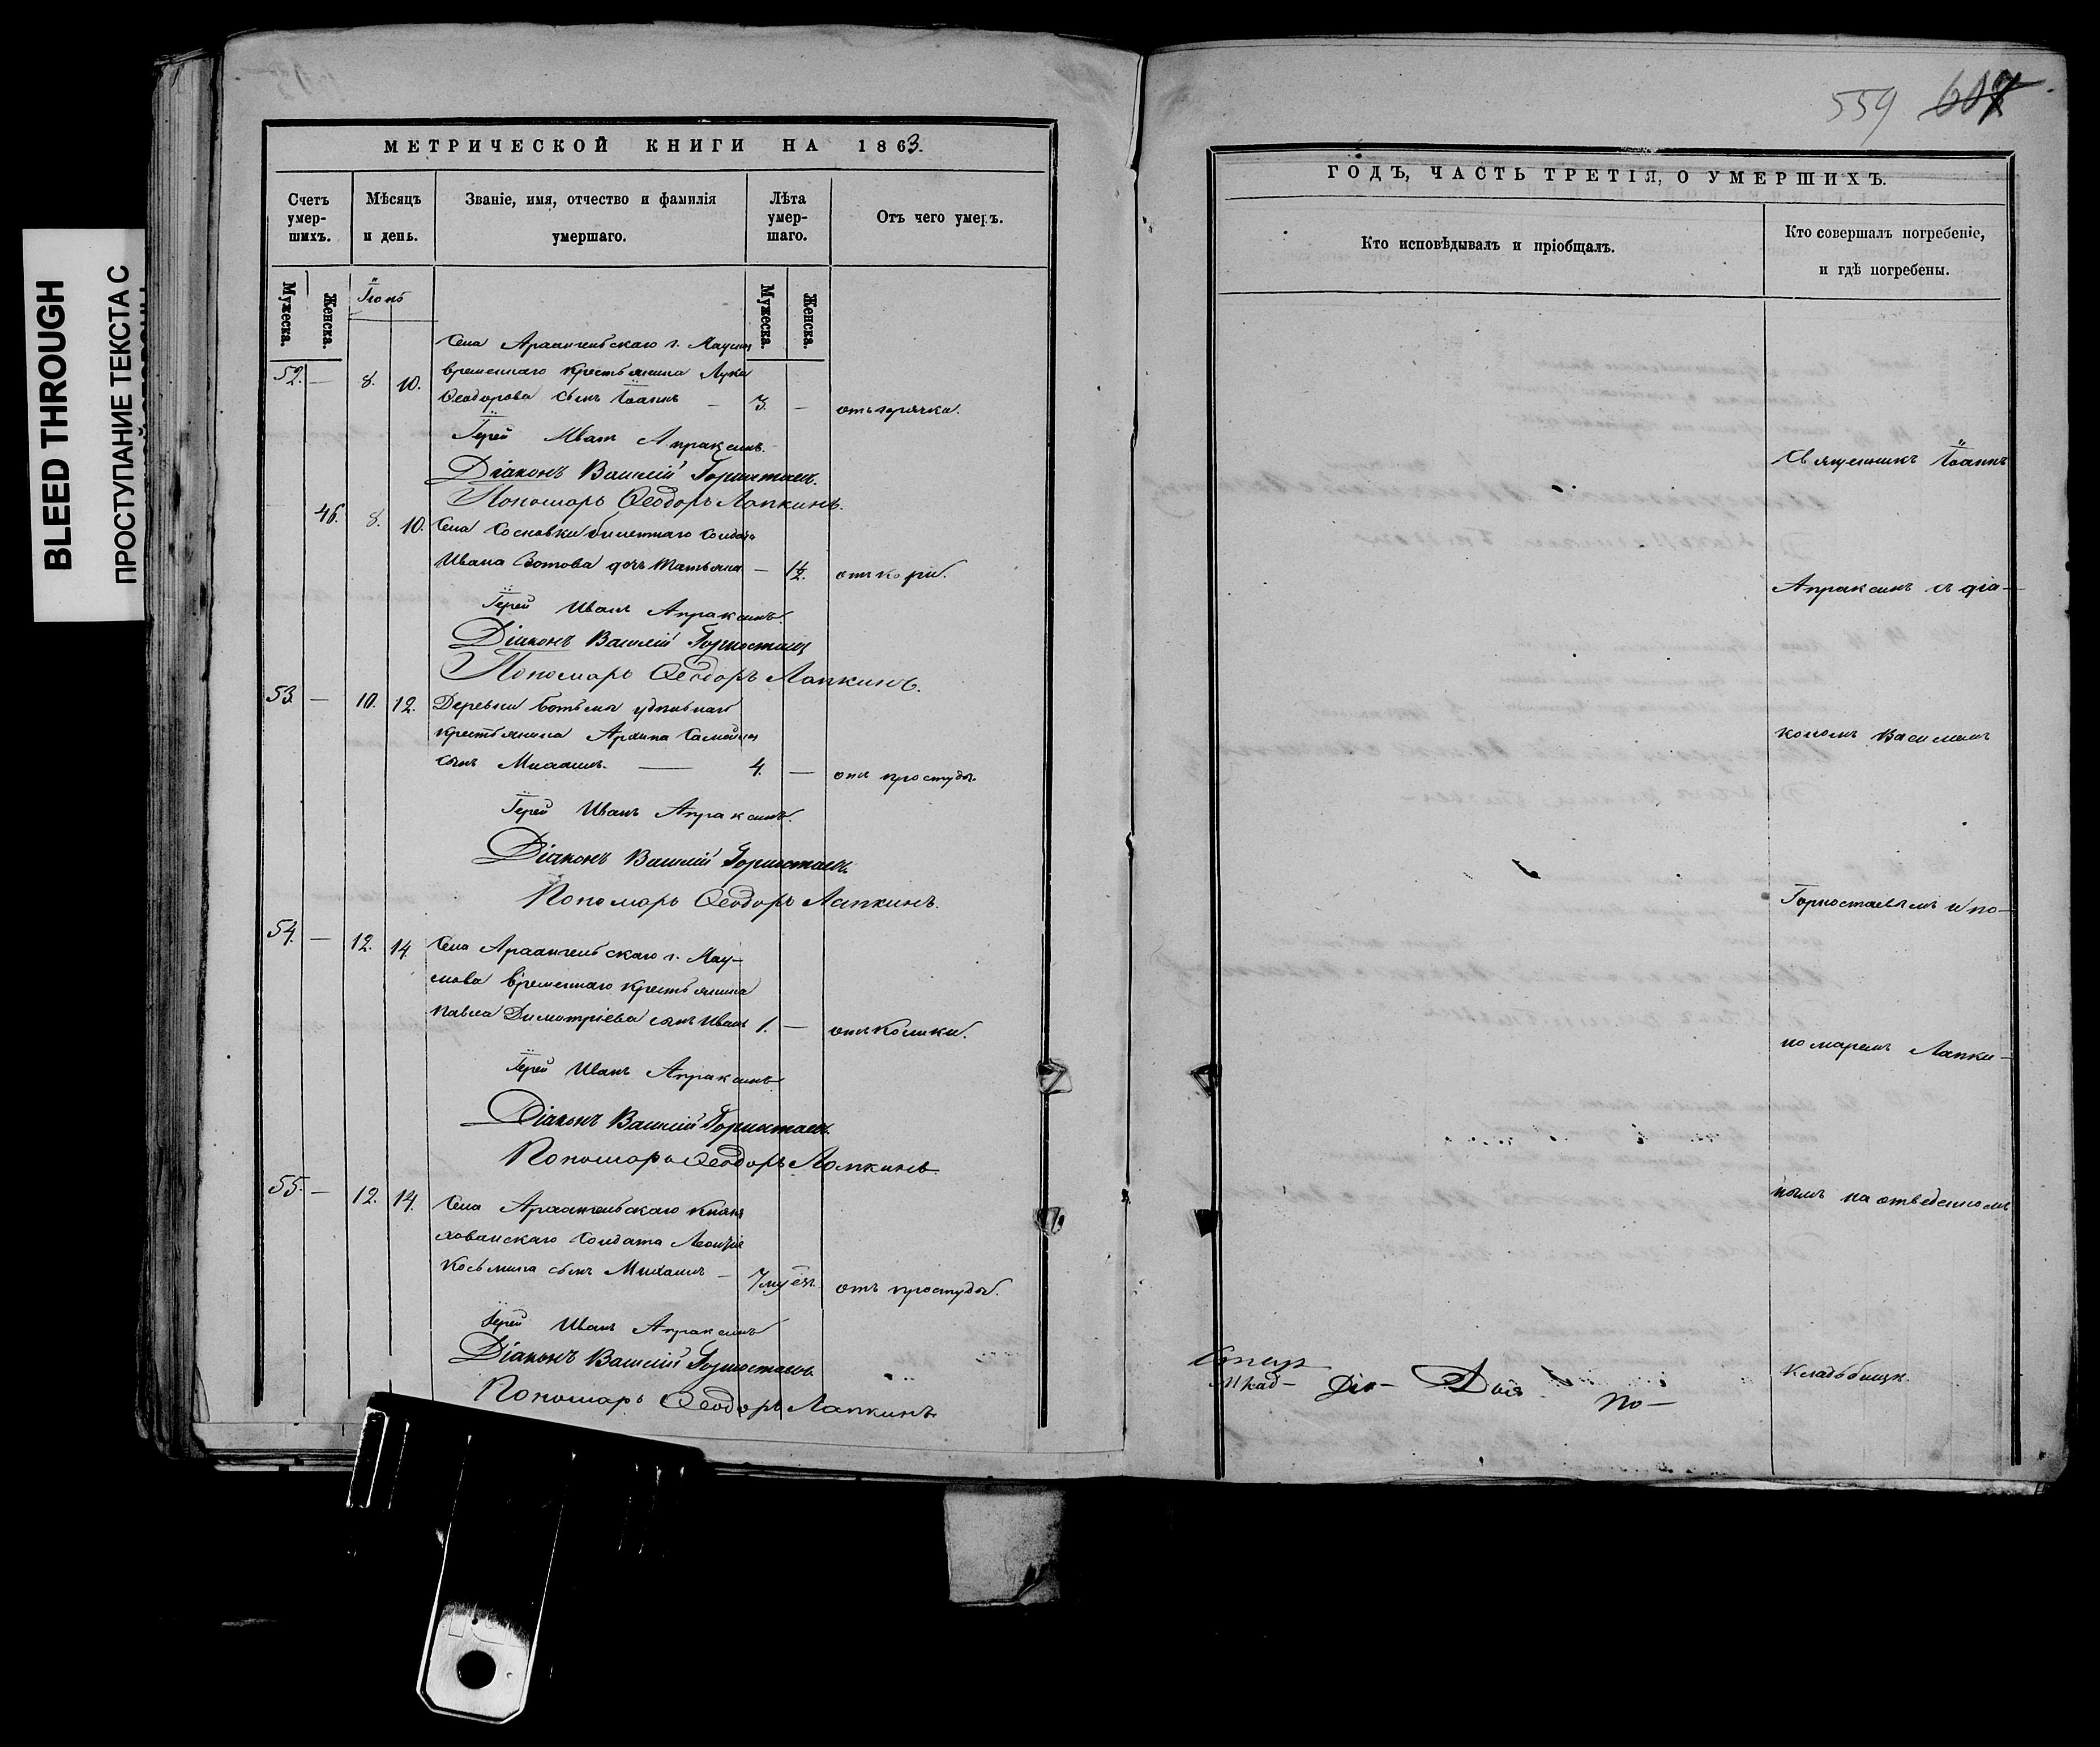 BLEED THROUGH
ПРОСТУПАНИЕ ТЕКСТА С
559 607
МЕТРИЧЕСКОЙ КНИГИ НА 1863.
Счетъ умер-шихъ.
Мѣсяцъ и день.
Званіе, имя, отчество и фамилія умершаго.
Лѣта умер-шаго.
Отъ чего умеръ.
Мужеска.
Женска.
Іюнь
Мужеска.
Женска.
Села Архангельскаго г. Наумова
52. — 8. 10. временнаго крестьянина Луки
Ѳеодорова сынъ Іоаннъ — 3. — отъ горячки.
Іерей Иванъ Апраксинъ.
Діаконъ Василій Горностаевъ.
Пономарь Ѳеодоръ Лапкинъ.
46. 8. 10. Села Сосновки билетнаго солдата
Ивана Зотова дочь Татьяна — 1½. отъ кори.
Іерей Иванъ Апраксинъ.
Діаконъ Василій Горностаевъ
Пономарь Ѳеодоръ Лапкинъ.
53. — 10. 12. Деревни Ботьмы удѣльнаго
крестьянина Архипа
сынъ Михаилъ. — 4. — отъ простуды.
Іерей Иванъ Апраксинъ.
Діаконъ Василій Горностаевъ.
Пономарь Ѳеодоръ Лапкинъ.
54. — 12. 14. Села Архангельскаго г. Нау-
мова временнаго крестьянина
Павла Димитріева сынъ Иванъ 1. — отъ колики.
Іерей Иванъ Апраксинъ
Діаконъ Василій Горностаевъ.
Пономарь Ѳеодоръ Лапкинъ.
55. — 12. 14. Села Архангельскаго Княже
хованскаго солдата Леонтія
Косьмина сынъ Михаилъ — 7 мѣс. отъ простуды.
Іерей Иванъ Апраксинъ
Діаконъ Василій Горностаевъ.
Пономарь Ѳеодоръ Лапкинъ.
ГОДЪ, ЧАСТЬ ТРЕТІЯ, О УМЕРШИХЪ.
Кто исповѣдывалъ и пріобщалъ.
Кто совершалъ погребеніе, и гдѣ погребены.
Священникъ Іоаннъ
Апраксинъ съ діа-
кономъ Василіемъ
Горностаевымъ и по-
номаремъ Лапки-
нымъ на отведенномъ
кладбищѣ.
Діа-
По-